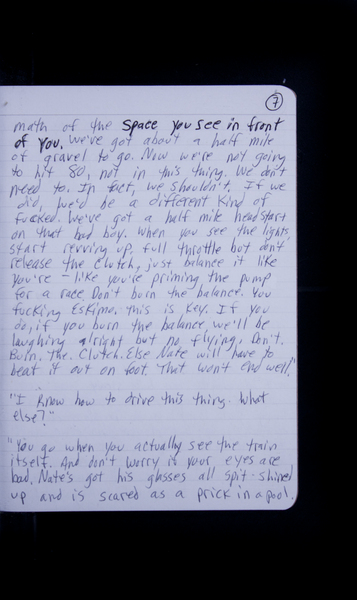 7
math of the space you see in front
of you. We've got about a half mile
of gravel to go. Now we're not going
to hit 80, not in this thing. We don't
need to. In fact, we shouldn't. If we
did, we'd be a different kind of
fucked. We've got a half mile headstart
on that bad boy. When you see the lights,
start revving up, full throttle but don't
release the clutch, just balance it like
you're – like you're priming the pump
for a race. Don't burn the balance. You
fucking Eskimo. This is key. If you
do, if you burn the balance we'll be
laughing alright but no flying. Don't.
Burn. The. Clutch. Else Nate will have to
beat it out on foot. That won't end well."
"I know how to drive this thing. What
else?"
"You go when you actually see the train
itself. And don't worry if your eyes are
bad. Nate's got his glasses all spit-shined
up and is scared as a prick in a pool.